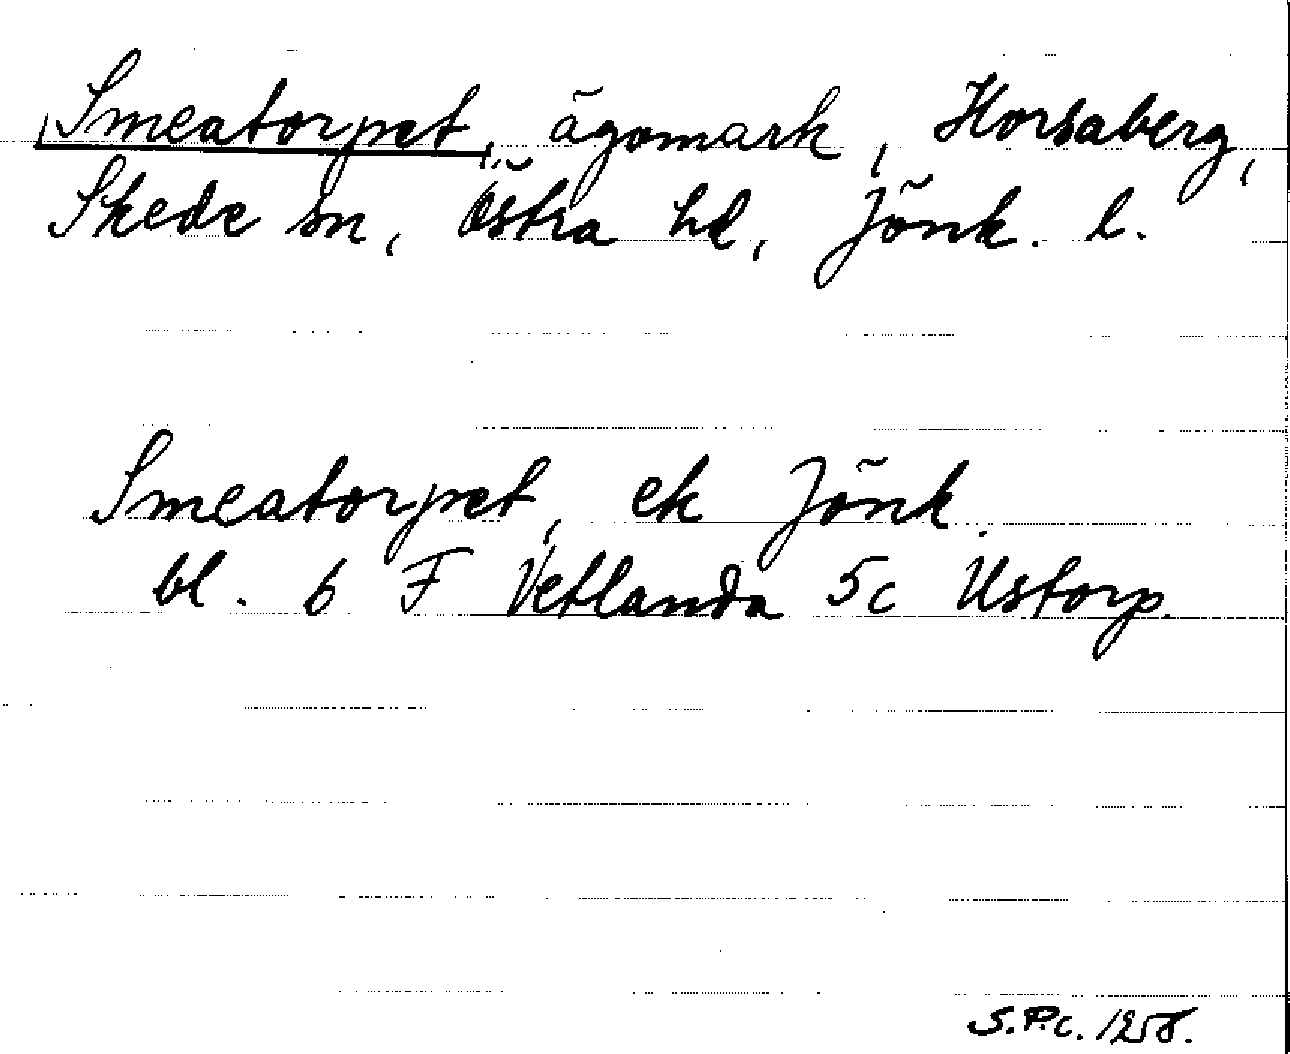 Smeatorpet, ägomark, Horsaberg,
Skede sn, Östra hd, Jönk. l.
Smeatorpet, ek Jönk.
bl. 6 F Vetlanda 5c Ustorp.
S.P.c. 1958.